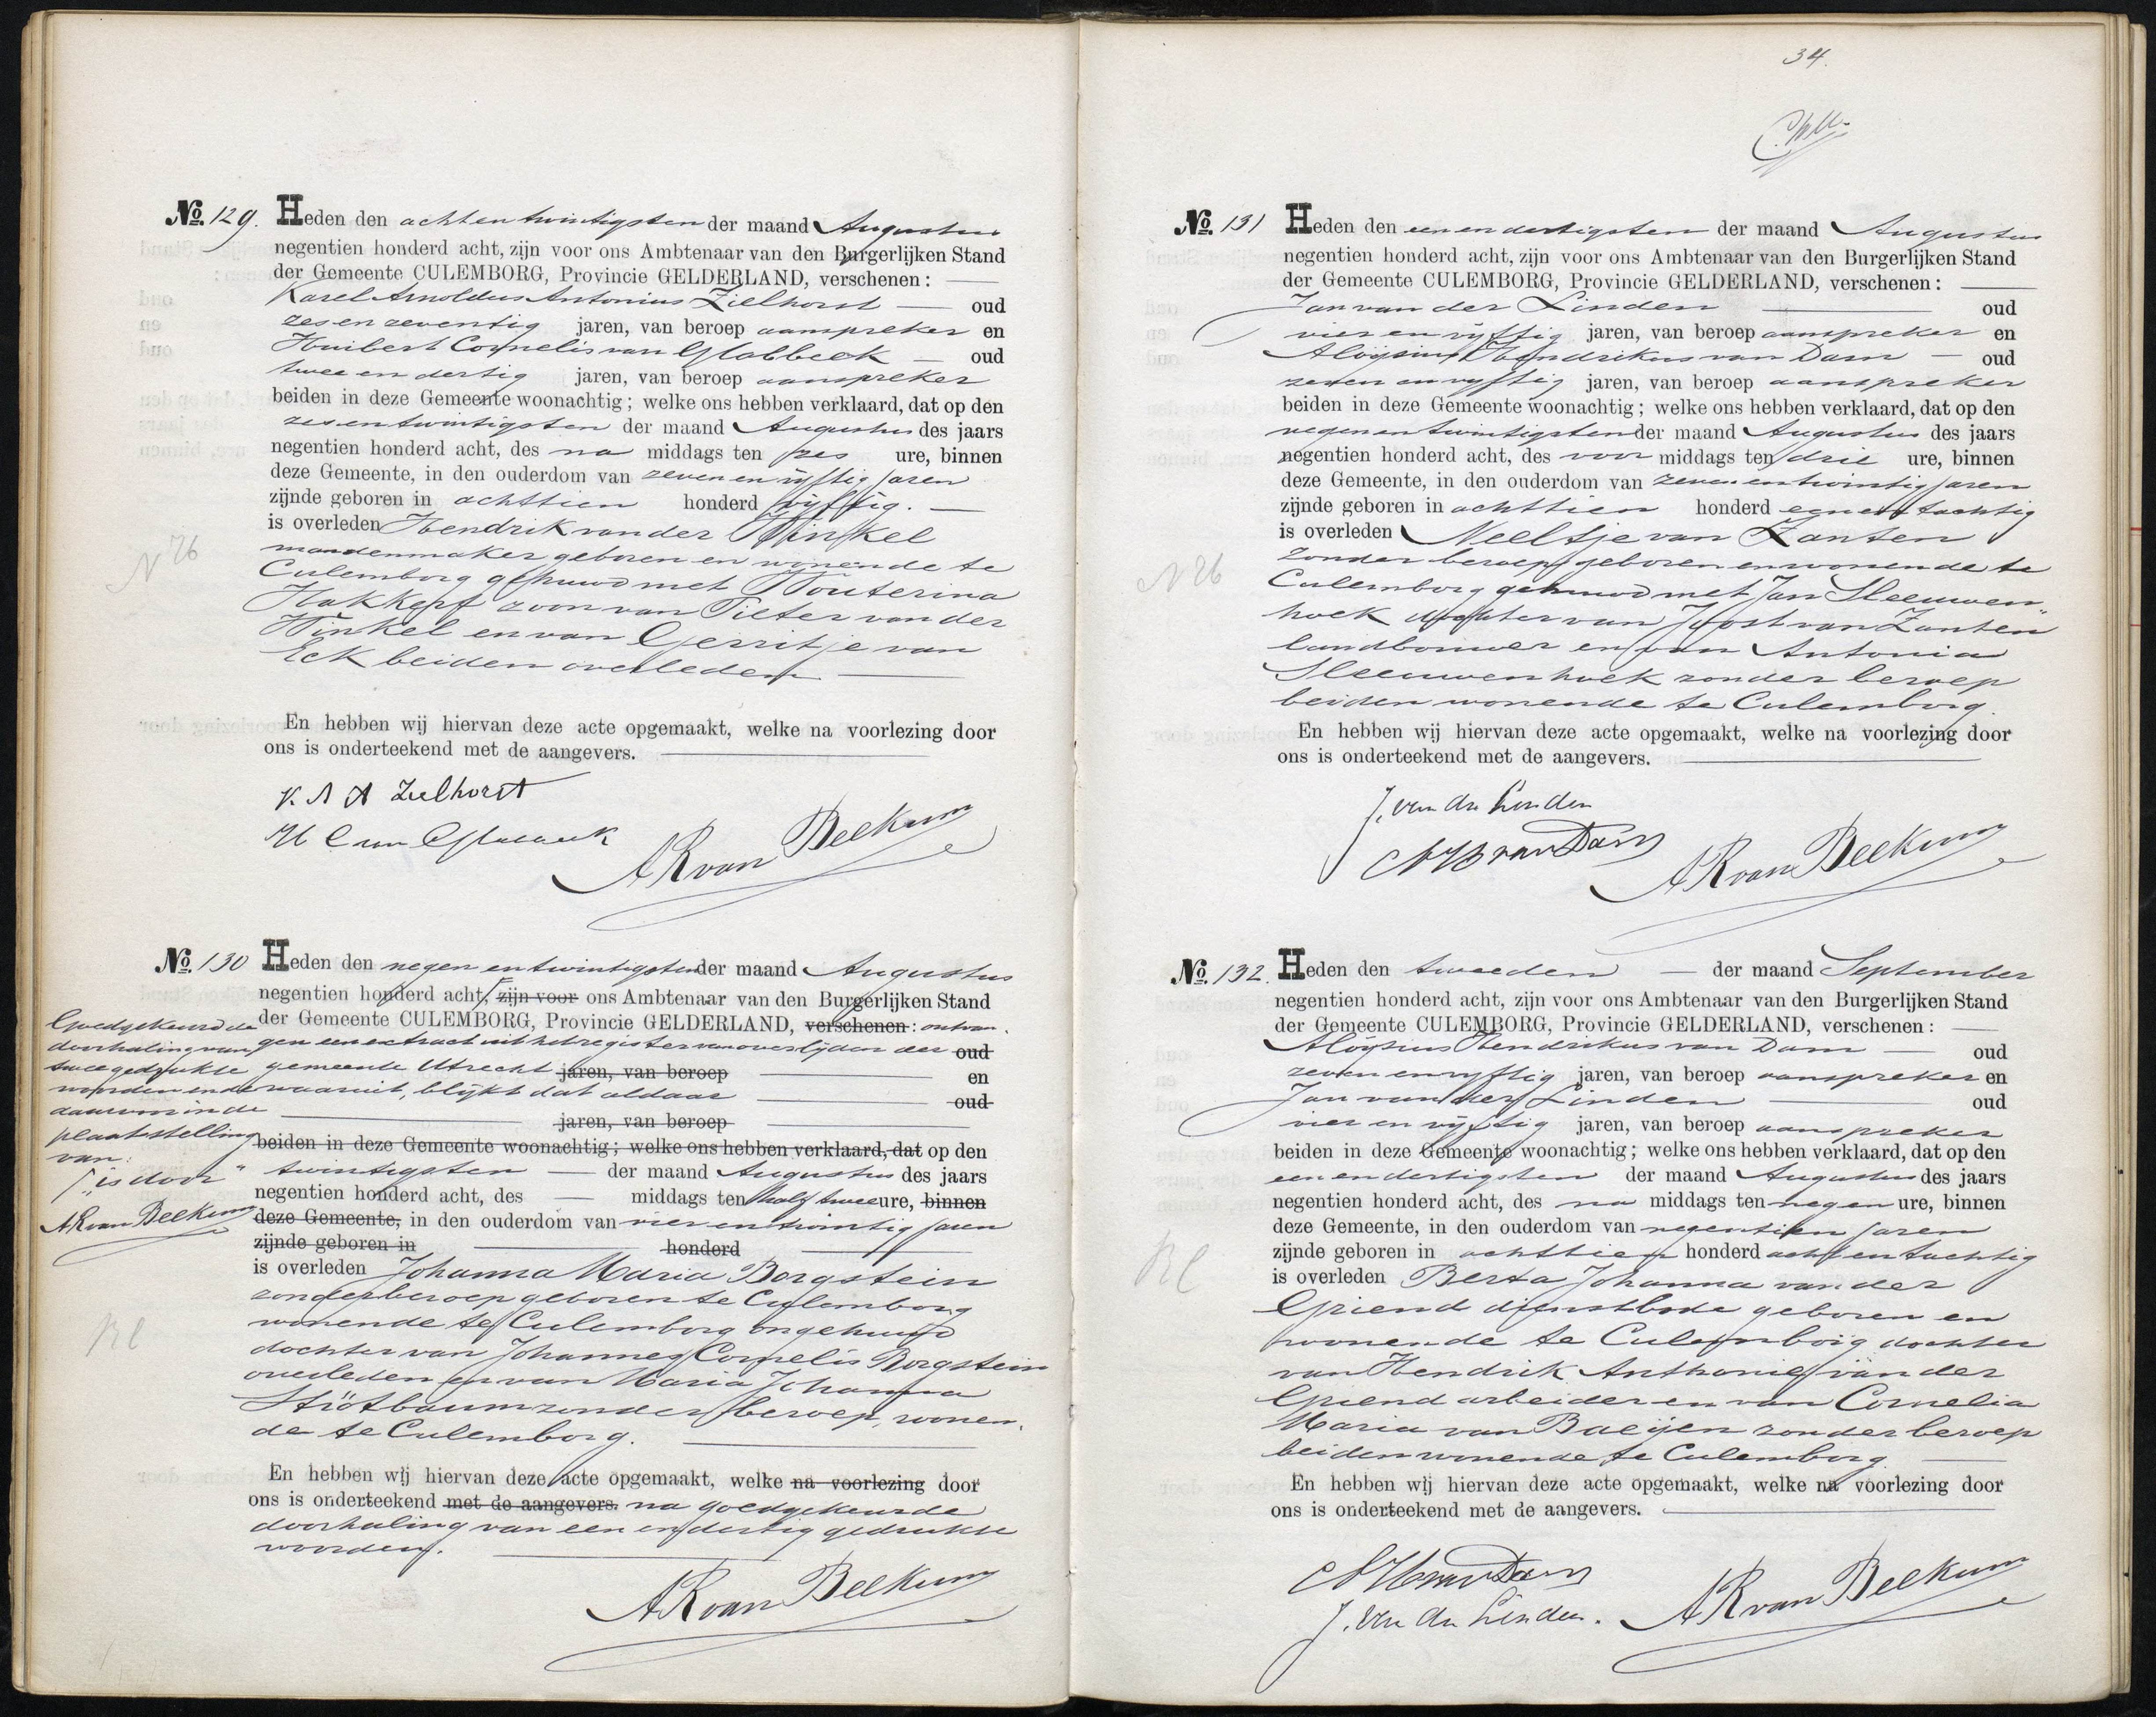 No. 129. Heden den achtentwintigsten der maand Augustus
negentien honderd acht, zijn voor ons Ambtenaar van den Burgerlijken Stand
der Gemeente CULEMBORG, Provincie GELDERLAND, verschenen:
Karel Arnoldus Antonius Zielhorst oud
zes en zeventig jaren, van beroep aanspreker en
Huibert Cornelis van Glabbeek oud
twee en dertig jaren, van beroep aanspreker
beiden in deze Gemeente woonachtig; welke ons hebben verklaard, dat op den
zesentwintigsten der maand Augustus des jaars
negentien honderd acht, des na middags ten zes ure, binnen
deze Gemeente, in den ouderdom van zeven en vijftig jaren
zijnde geboren in achttien honderd vijftig.
is overleden Hendrik van der Winkel
mandenmaker geboren en wonende te
Culemborg gehuwd met Wouterina
Hakkert zoon van Pieter van der
Winkel en van Gerritje van
Eck beiden overleden
N26
En hebben wij hiervan deze acte opgemaakt, welke na voorlezing door
ons is onderteekend met de aangevers.
K. A A Zielhorst
H C van Glabbeek
AR van Beekum
No. 130 Heden den negen en twintigsten der maand Augustus
negentien honderd acht, zijn voor ons Ambtenaar van den Burgerlijken Stand
der Gemeente CULEMBORG, Provincie GELDERLAND, verschenen: ontvan-
gen een extract uit het register van overlijden der oud
gemeente Utrecht jaren, van beroep en
waaruit, blijkt dat aldaar oud
jaren, van beroep
beiden in deze Gemeente woonachtig; welke ons hebben verklaard, dat op den
twintigsten der maand Augustus des jaars
negentien honderd acht, des middags ten half twee ure, binnen
deze Gemeente, in den ouderdom van vier en twintig jaren
zijnde geboren in honderd
is overleden Johanna Maria Borgstein
zonder beroep geboren te Culemborg
wonende te Culemborg ongehuwd
dochter van Johannes Cornelis Borgstein
overleden en van Maria Johanna
Stïötbaum zonder beroep, wonen-
de te Culemborg.
Goedgekeurd de
doorhaling van
twee gedrukte
woorden en de
daarvoor in de
plaatsstelling
van:
"is door"
AR van Beekum
RC
En hebben wij hiervan deze acte opgemaakt, welke na voorlezing door
ons is onderteekend met de aangevers. na goedgekeurde
doorhaling van een en dertig gedrukte
woorden.
AR van Beekum
34.
No. 131 Heden den een en dertigsten der maand Augustus
negentien honderd acht, zijn voor ons Ambtenaar van den Burgerlijken Stand
der Gemeente CULEMBORG, Provincie GELDERLAND, verschenen:
Jan van der Linden oud
vier en vijftig jaren, van beroep aanspreker en
Aloÿsius Hendrikus van Dam oud
zeven en vyftig jaren, van beroep aanspreker
beiden in deze Gemeente woonachtig; welke ons hebben verklaard, dat op den
negen en twintigsten der maand Augustus des jaars
negentien honderd acht, des voor middags ten drie ure, binnen
deze Gemeente, in den ouderdom van zeven en twintig jaren
zijnde geboren in achttien honderd een en tachtig
is overleden Neeltje van Zanten
zonder beroep geboren en wonende te
Culemborg gehuwd met Jan Sleeuwen-
hoek dochter van Joost van Zanten
landbouwer en van Antonia
Sleeuwenhoek zonder beroep
beiden wonende te Culemborg.
N26
En hebben wij hiervan deze acte opgemaakt, welke na voorlezing door
ons is onderteekend met de aangevers.
J. van der Linden
AH van Dam
AR van Beekum
No. 132. Heden den tweeden der maand September
negentien honderd acht, zijn voor ons Ambtenaar van den Burgerlijken Stand
der Gemeente CULEMBORG, Provincie GELDERLAND, verschenen:
Aloÿsius Hendrikus van Dam oud
zeven en vyftig jaren, van beroep aanspreker en
Jan van der Linden oud
vier en vijftig jaren, van beroep aanspreker
beiden in deze Gemeente woonachtig; welke ons hebben verklaard, dat op den
een en dertigsten der maand Augustus des jaars
negentien honderd acht, des na middags ten negen ure, binnen
deze Gemeente, in den ouderdom van negentien jaren
zijnde geboren in achttien honderd acht en tachtig
is overleden Berta Johanna van der
Griend dienstbode geboren en
wonende te Culemborg dochter
van Hendrik Anthonie van der
Griend arbeider en van Cornelia
Maria van Baeijen zonder beroep
beiden wonende te Culemborg.
RC
En hebben wij hiervan deze acte opgemaakt, welke na voorlezing door
ons is onderteekend met de aangevers.
AH van Dam
J. van der Linden.
AR van Beekum